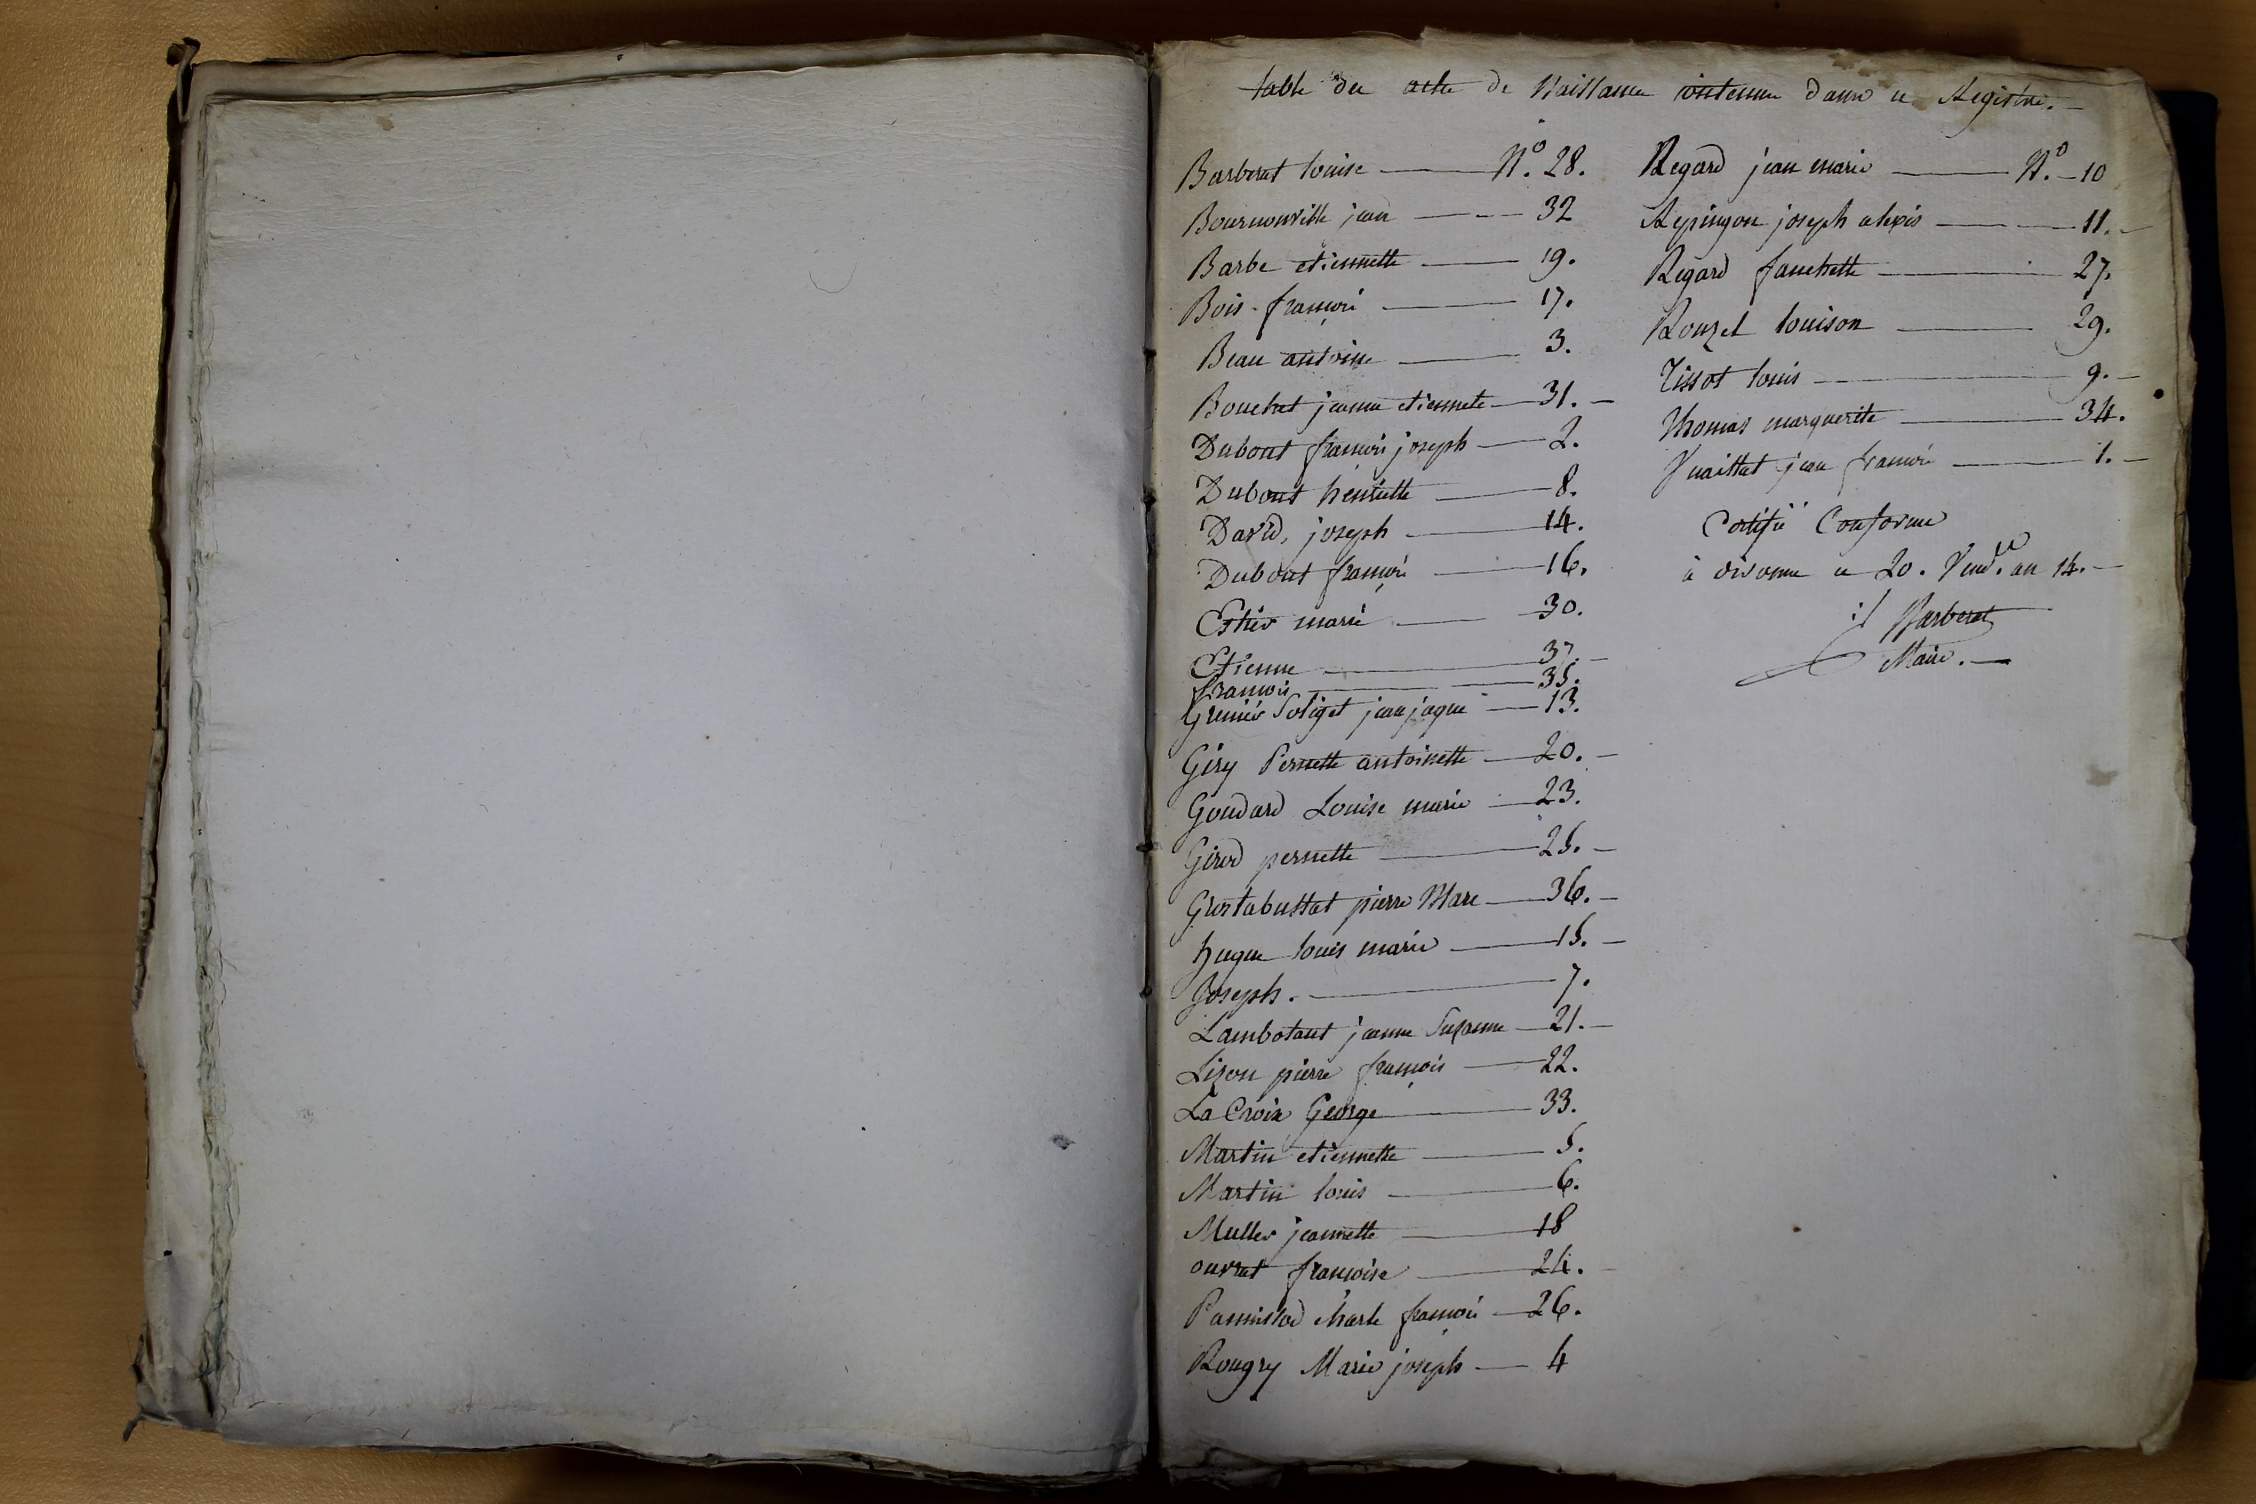 table des actes de Naissance contenus dans ce Registre.
Barberat louise — N.º 28.
Bournonville jean — 32
Barbe etiennette — 19.
Bois françois — 17.
Beau antoine — 3.
Bouchet jeanne etiennete — 31.
Dubout françois joseph — 2.
Dubout henriette — 8.
David, joseph — 14.
Dubout françois — 16.
Esthier marie — 30.
Etienne — 37.
françois — 35.
Grenier Soliget jean jaque — 13.
Giry Pernette antoinette — 20.
Goudard Louise marie — 23.
Girod pernette — 25.
Grostabussat pierre Marc — 36.
hugue louis marie — 15.
Joseph. — 7.
Lambotant jeanne Susanne — 21.
Lison pierre françois — 22.
La Croix George — 33.
Martin etiennette — 5.
Martin louis — 6.
Muller jeannette — 18
ouvrat françoise — 24.
Pannissod charle françois — 26.
Rougry Marie joseph — 4
Regard jean marie — N.º 10
Repingon joseph alexis — 11.
Regard fanchette — 27.
Rouzet louison — 29.
Tissot louis — 9.
Thomas marguerite — 34.
Vuaillat jean françois — 1.
Certifié Conforme
à divonne ce 20. Vend.re an 14.
Barberat
Maire.